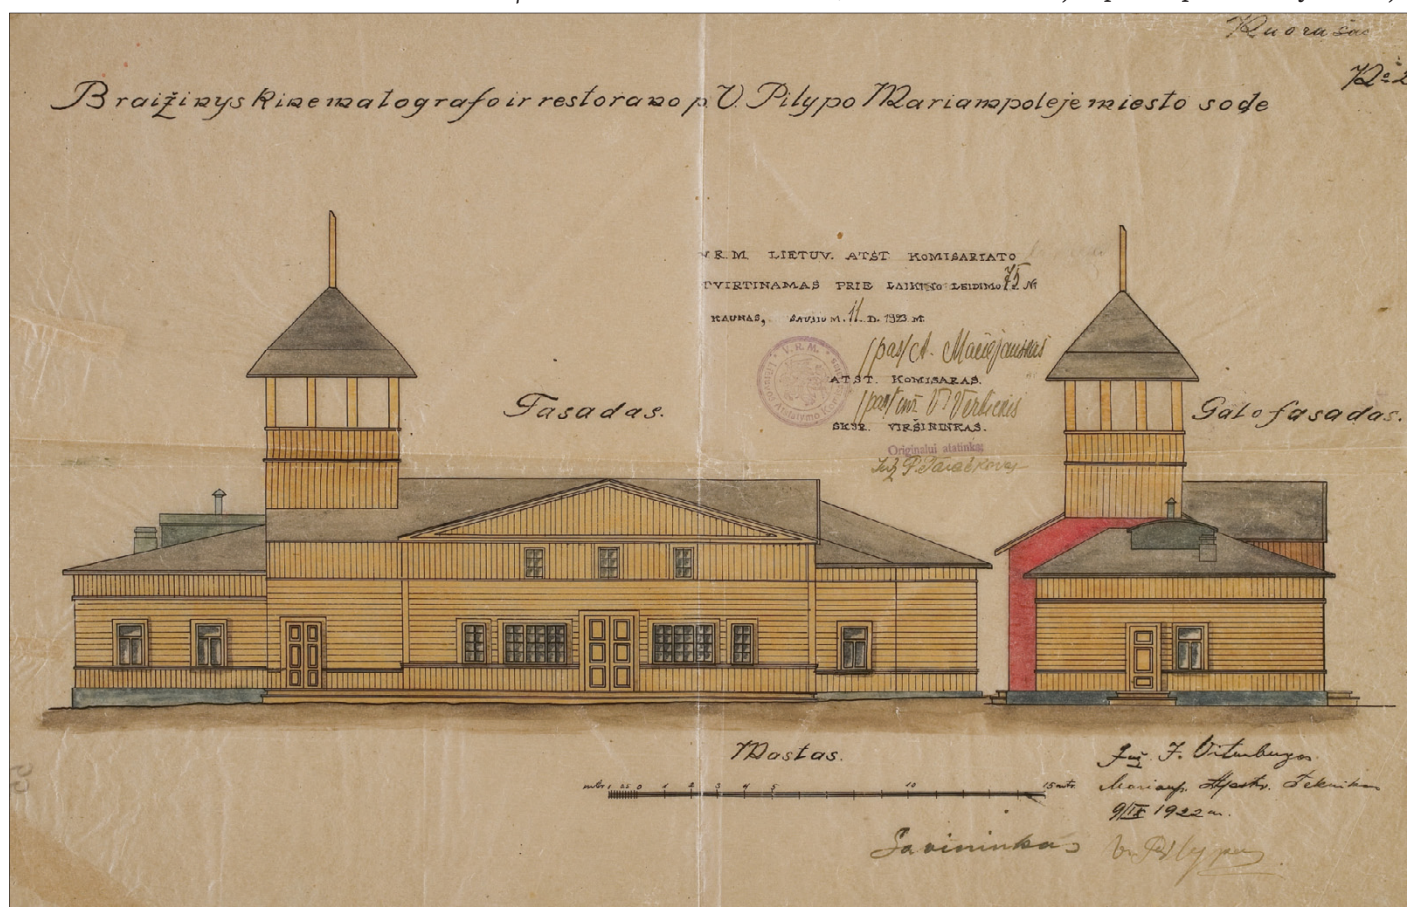 Nuorašas
No 2
Braižinys kinematografo ir restorano p V. Pilypo Mariampoleje miesto sode
V.R.M. LIETUV. ATST KOMISARIATO
TVIRTINAMAS PRIE LAIKINO LEIDIMO 75 Nr
KAUNAS, SAUSIO M. 11 D. 1923 M.
/pas/ A. Mačiejauskas
ATST. KOMISARAS.
/pas/ inž V. Verbickis
SKYR. VIRŠININKAS.
Originalui atatinka:
Inž P. Taraškovas
V. R. M.
Fasadas.
Galo fasadas.
Mastas.
metr. 1 0.5 0 1 2 3 4 5 10 15 mtr
Inž. J.
Mariamp. Apskr. Teknikas
9/IX 1922 m.
Savininkas V. Pilypas